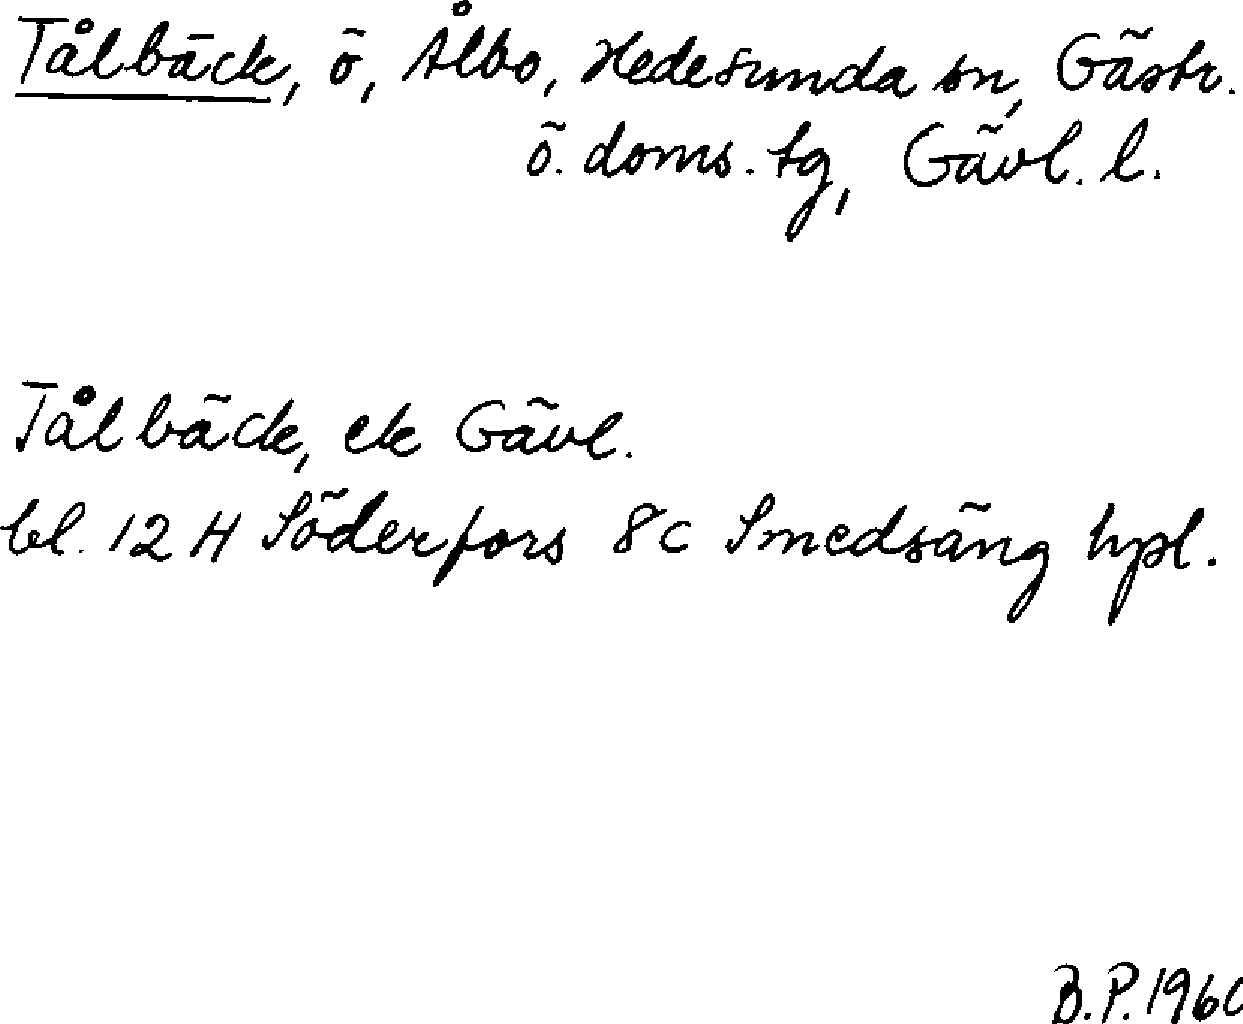 Tålbäck, ö, Ålbo, Hedesunda sn, Gästr.
ö. doms. tg, Gävl. l.
Tålbäck, ek Gävl.
bl. 12 H Söderfors 8c Smedsäng hpl.
B.P. 1960